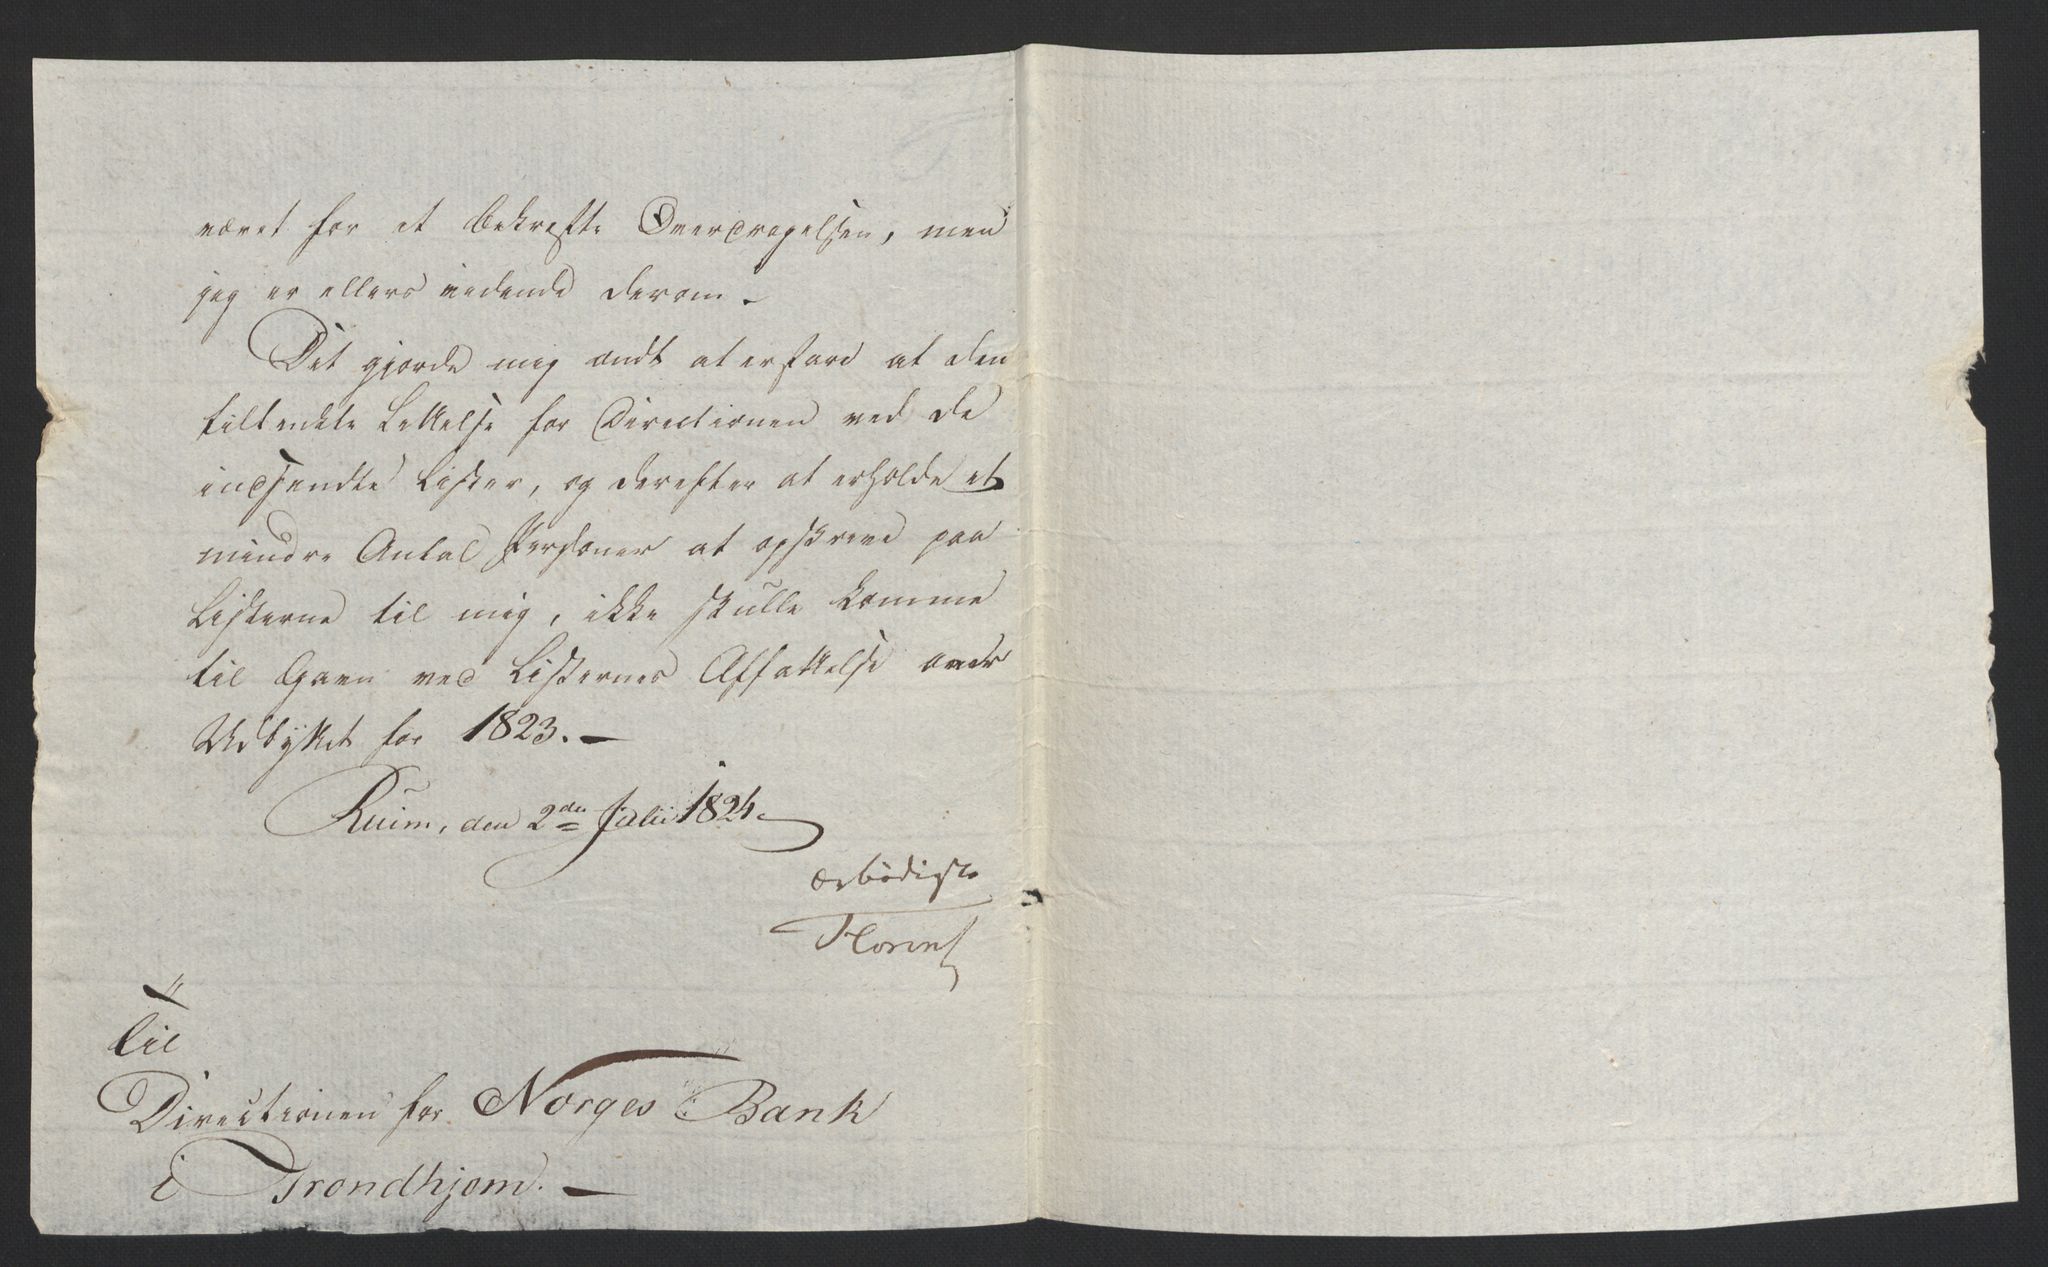 været for at bekræfte Overdragelsen, men
jeg er ellers vidende derom. –
Det gjorde mig ondt at erfare at den
tiltænkte Lettelse for Directionen ved de
indsendte Lister, og derefter at erholde et
mindre Antal Personer at opskrive paa
Listerne til mig, ikke skulle komme
til Gavn ved Listernes Affattelse over
Udbyttet for 1823. –
Ruim, den 2den Julii 1824.
Ærbødigst
Til
Directionen for Norges Bank
i Trondhjem. –